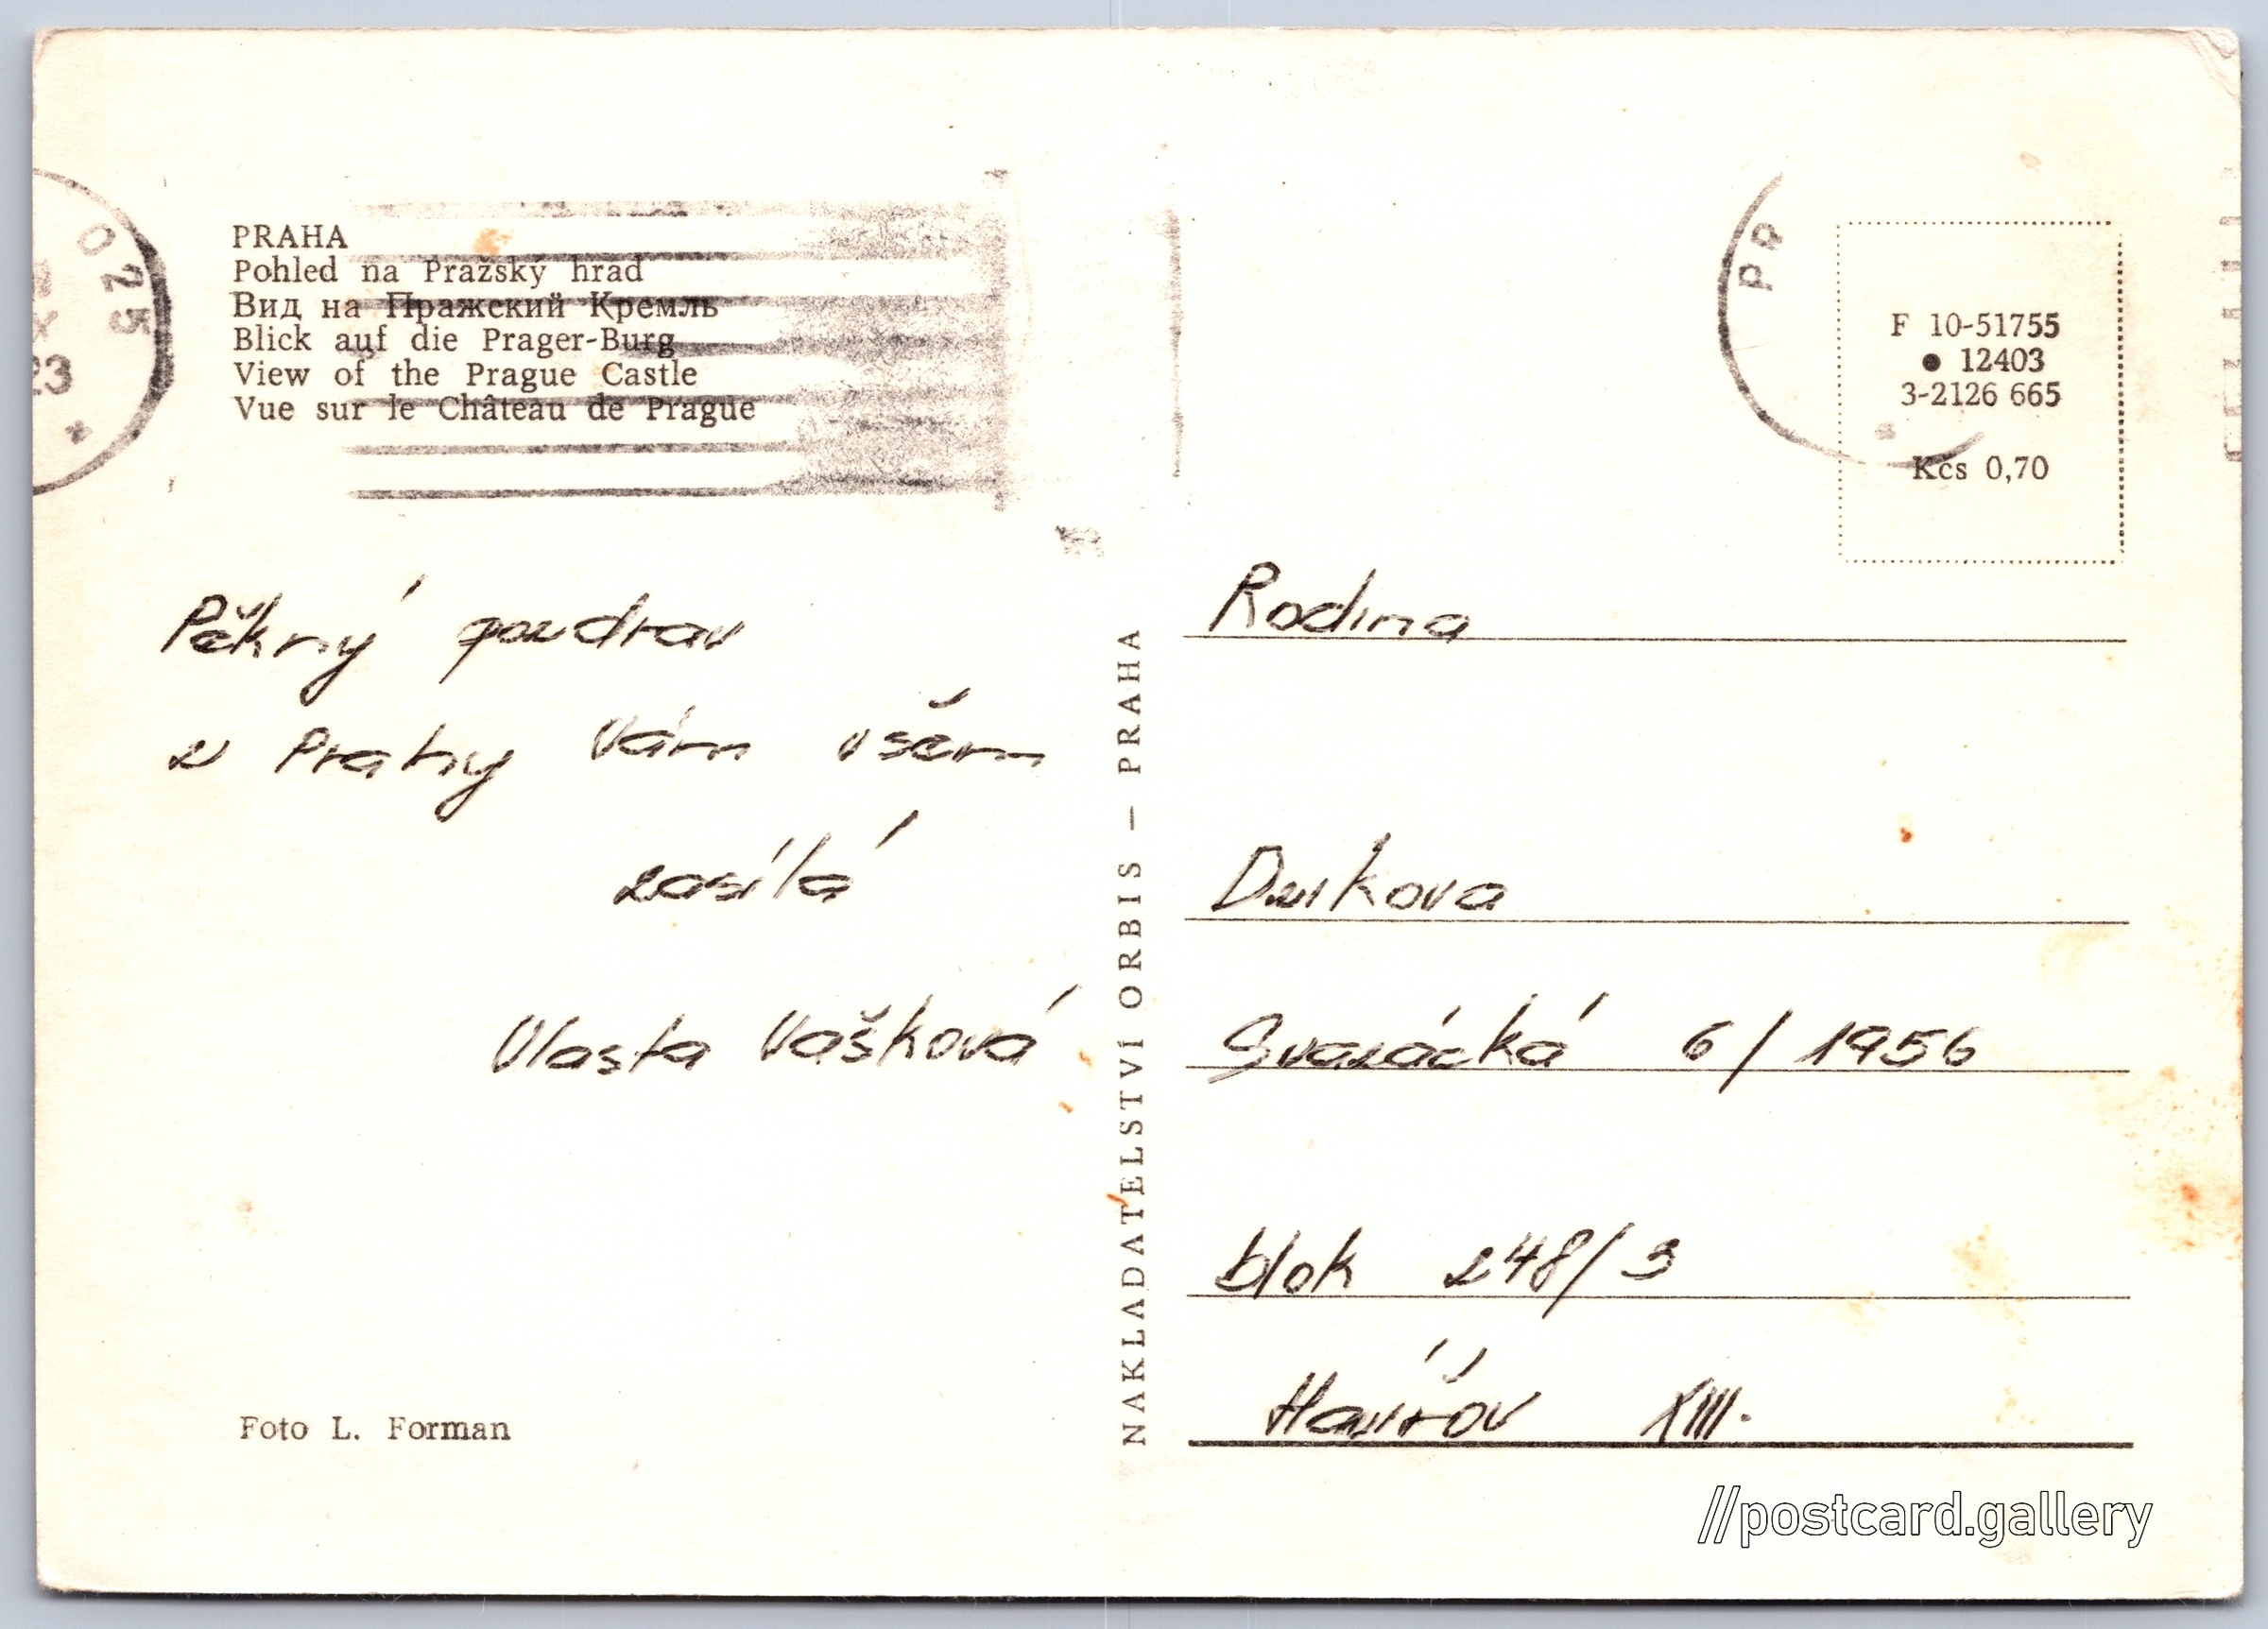 PRAHA
Pohled na Pražský hrad
Вид на Пражский Кремль
Blick auf die Prager-Burg
View of the Prague Castle
Vue sur le Château de Prague
025
23
Pěkný pozdrav
z Prahy Vám všem
zasílá
Vlasta Vašková
Foto L. Forman
NAKLADATELSTVÍ ORBIS – PRAHA
PR
F 10-51755
● 12403
3-2126 665
Kčs 0,70
Rodina
Svazácká 6/1956
blok 248/3
Havířov XIII.
//postcard.gallery